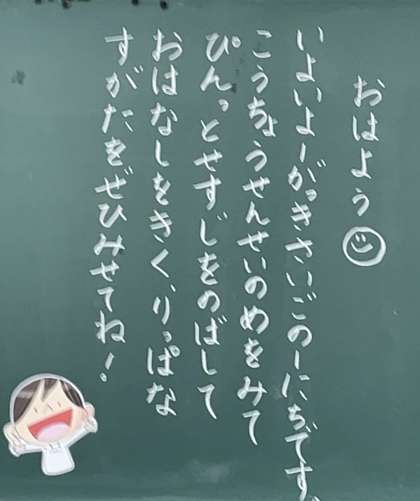 おはよう
いよいよ一がっきさいごの一にちです。
こうちょうせんせいのめをみて
ぴんっとせすじをのばして
おはなしをきく、りっぱな
すがたをぜひみせてね！